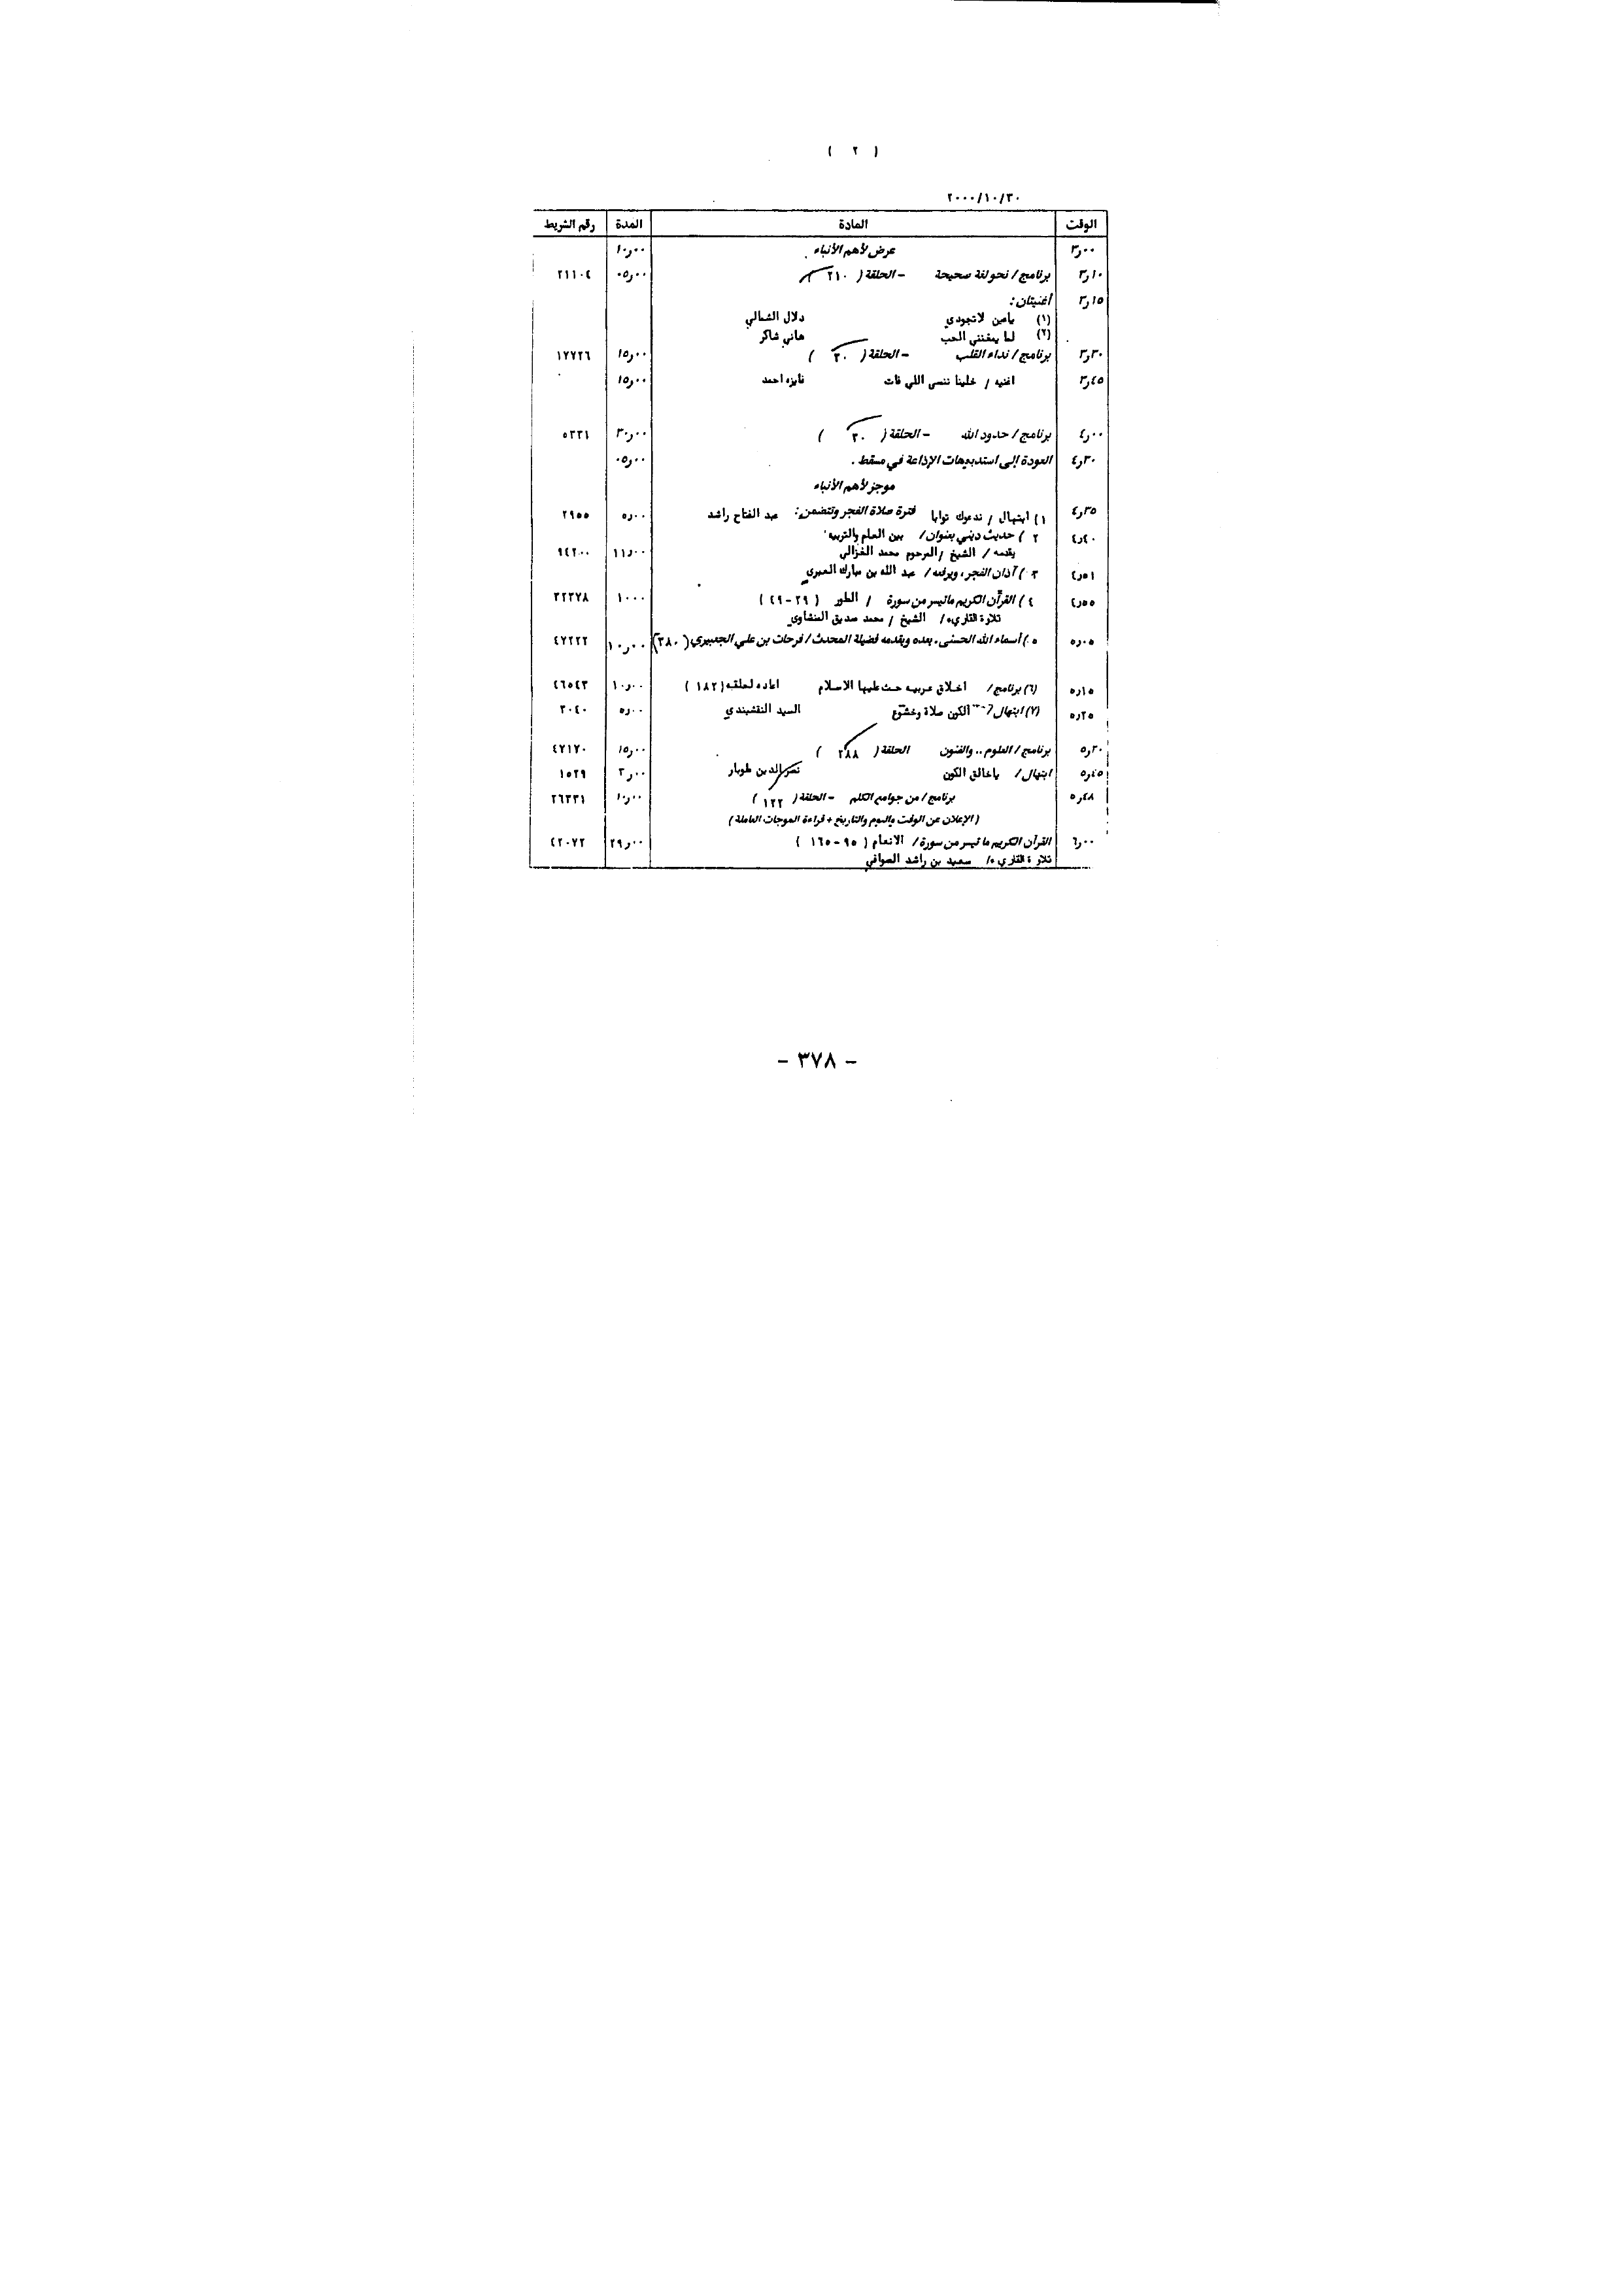 ( ٢ )
٢٠٠٠/١٠/٣٠
الوقت المادة المدة رقم الشريط
٣٫٠٠ عرض لأهم الأنباء . ١٠٫٠٠
٣٫١٠ برنامج / نحو لغة صحيحة – الحلقة ( ٢١٠ ) ٠٥٫٠٠ ٢١١٠٤
٣٫١٥ أغنيتان :
(١) يامن لاتجودي دلال الشمالي
(٢) لما يعشقني الحب هاني شاكر
٣٫٣٠ برنامج / نداء القلب – الحلقة ( ٣٠ ) ١٥٫٠٠ ١٧٧٢٦
٣٫٤٥ اغنيه / خلينا ننسى اللي فات فايزه احمد ١٥٫٠٠
٤٫٠٠ برنامج / حدود الله – الحلقة ( ٣٠ ) ٣٠٫٠٠ ٥٣٣١
٤٫٣٠ العودة إلى استديوهات الإذاعة في مسقط . ٠٥٫٠٠
موجز لأهم الأنباء
٤٫٣٥ فترة صلاة الفجر وتتضمن :
١ ) ابتهال / ندعوك توابا عبد الفتاح راشد ٥٫٠٠ ٢٩٥٥
٤٫٤٠ ٢ ) حديث ديني بعنوان / بين العلم والتربيه
يقدمه / الشيخ / المرحوم محمد الغزالي ١١٫٠٠ ٩٤٢٠٠
٤٫٥١ ٣ ) آذان الفجر ، ويرفعه / عبد الله بن مبارك العبري
٤٫٥٥ ٤ ) القرآن الكريم ماتيسر من سورة / الطور ( ٢٩ - ٤٩ ) ١٠٠٠ ٣٢٣٧٨
تلاوة القاريء / الشيخ / محمد صديق المنشاوي
٥٫٠٥ ٥ ) أسماء الله الحسنى . يعده ويقدمه فضيلة المحدث / فرحات بن علي الجعبيري ( ٣٨٠ ) ١٠٫٠٠ ٤٧٢٢٢
٥٫١٥ (٦) برنامج / اخلاق عربيه حث عليها الاسلام اعاده لحلقه ( ١٨٢ ) ١٠٫٠٠ ٤٦٥٤٣
٥٫٢٥ (٧) ابتهال / الكون صلاة وخشوع السيد النقشبندي ٥٫٠٠ ٢٠٤٠
٥٫٣٠ برنامج / العلوم .. والفنون الحلقة ( ٢٨٨ ) ١٥٫٠٠ ٤٧١٧٠
٥٫٤٥ ابتهال / ياخالق الكون نصر الدين طوبار ٣٫٠٠ ١٥٢٩
٥٫٤٨ برنامج / من جوامع الكلم – الحلقة ( ١٢٢ ) ١٠٫٠٠ ٢٦٣٣١
( الإعلان عن الوقت واليوم والتاريخ + قراءة الموجات العاملة )
٦٫٠٠ القرآن الكريم ما تيسر من سورة / الانعام ( ٩٥ - ١٦٥ ) ٢٩٫٠٠ ٤٢٠٧٢
تلاوة القاريء / سعيد بن راشد الصوافي
– ٣٧٨ –